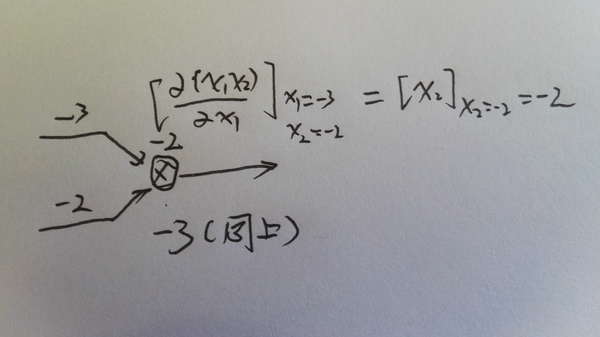 [∂(x₁x₂)/∂x₁] x₁=-3 x₂=-2 = [x₂] x₂=-2 = -2
-3
-2
×
-2
-3(同上)